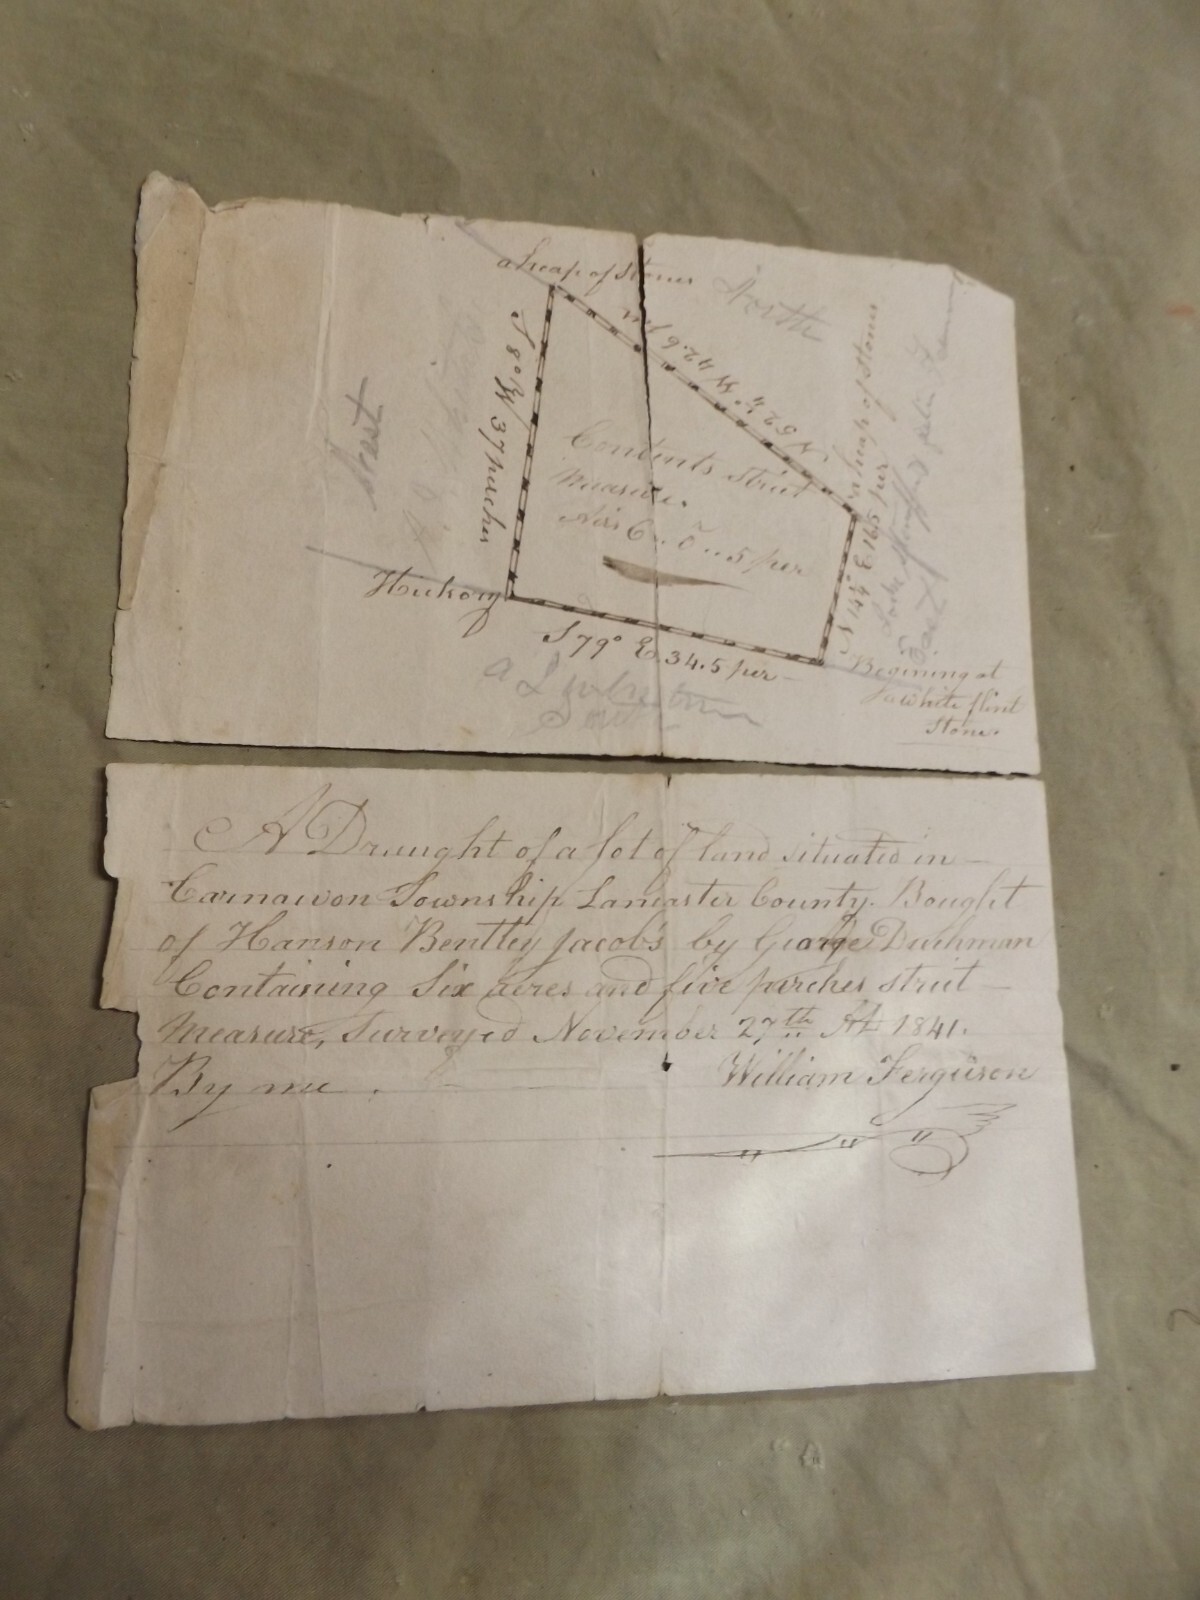 a heap of Stones
North
N 52¼° W 42.6 per
a heap of Stones
S 8° W 37 perches
West
Contents Strict
Measure.
Acrs 6 .. 0 .. 5 per
N 14¾° E 16.5 per
East
Hickory
S 79° E. 34.5 per
Begining at
a white flint
Stone.
A Draught of a lot of land situated in
Carnawon Township Lancaster County. Bought
of Hanson Bentley Jacobs by George Duchman
Containing Six acres and five perches strict
Measure, Surveyed November 27th AD 1841.
By me. William Ferguson